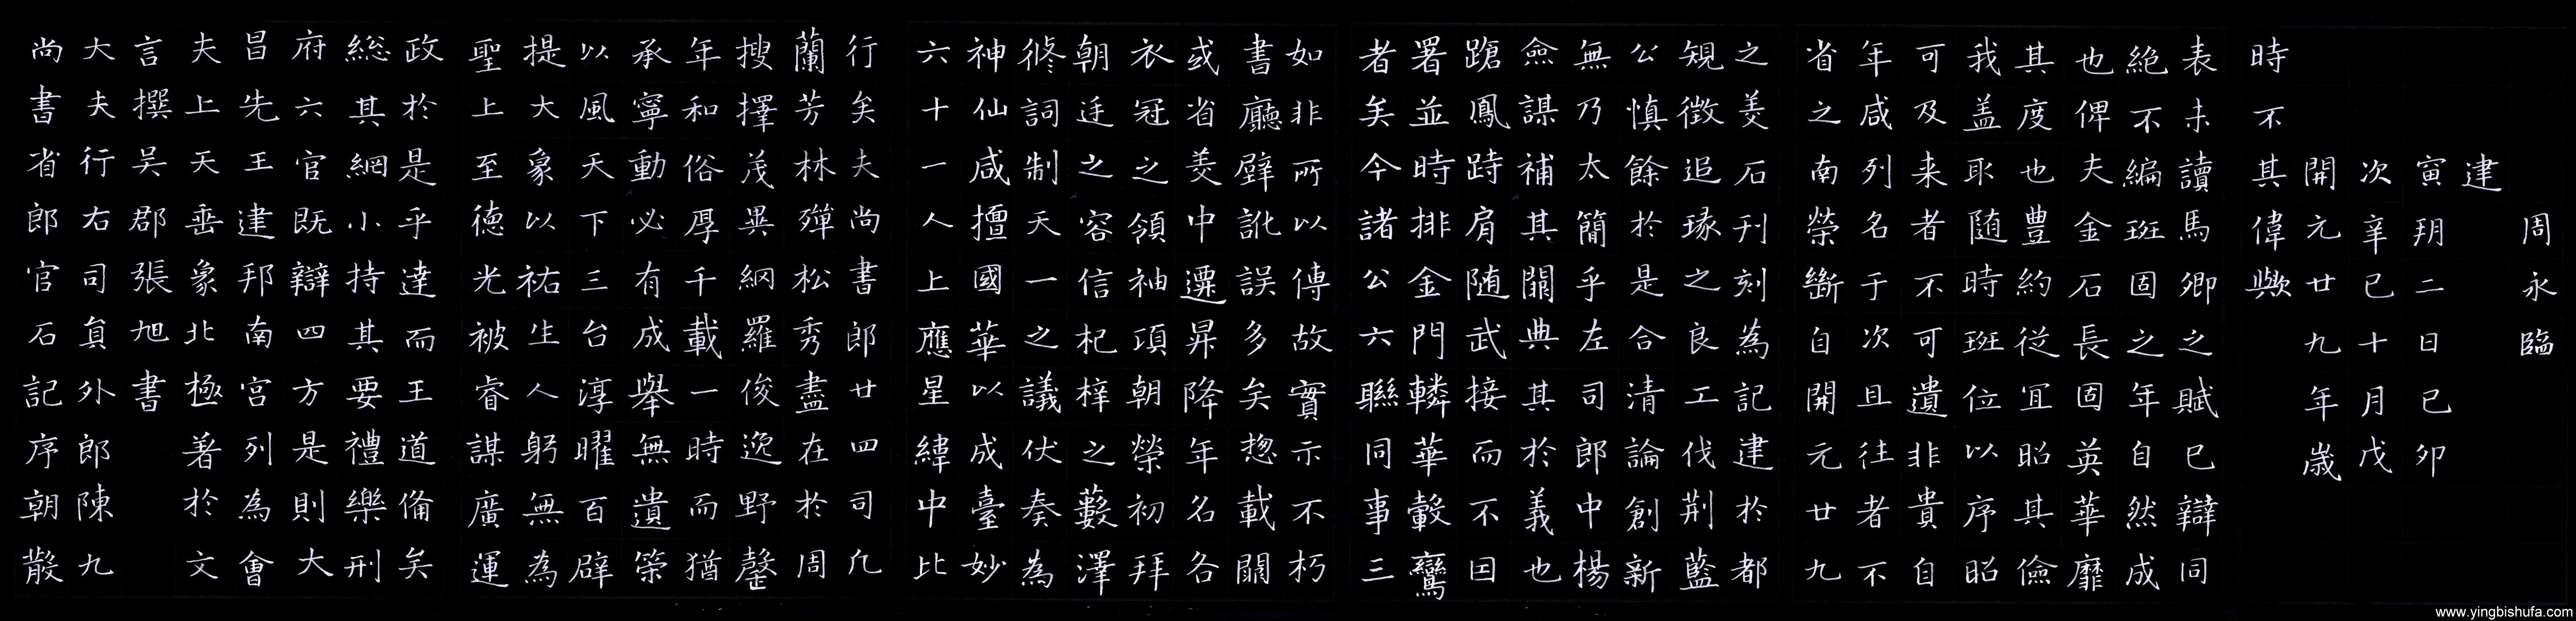 尚書省郎官石記序朝散
大夫行右司員外郎陳九
言撰吳郡張旭書
夫上天垂象北極著於文
昌先王建邦南宮列為會
府六官既辯四方是則大
総其綱小持其要禮樂刑
政於是乎達而王道備矣
聖上至德光被睿謀廣運
提大象以祐生人躬無為
以風天下三台淳曜百辟
承寧動必有成舉無遺筞
年和俗厚千載一時而猶
搜擇茂異網羅俊逸野罄
蘭芳林殫松秀盡在於周
行矣夫尚書郎廿四司凡
六十一人上應星緯中比
神仙咸擅國華以成臺妙
修詞制天一之議伏奏為
朝廷之容信杞梓之藪澤
衣冠之領袖項朝榮初拜
或省美中遷昇降年名各
書廳壁訛誤多矣揔載闕
如非所以傳故實示不朽
者矣今諸公六聯同事三
署並時排金門轔華轂鸞
蹌鳳跱肩随武接而不因
僉謀補其闕典其於義也
無乃太簡乎左司郎中楊
公慎餘於是合清論創新
規徵追琢之良工伐荆藍
之美石刊刻為記建於都
省之南榮斷自開元廿九
年咸列名于次且往者不
可及来者不可遺非貴自
我盖取随時班位以序昭
其度也豊約從宜昭其儉
也俾夫金石長固英華靡
絶不編班固之年自然成
表未讀馬卿之賦已辯同
時不其偉歟
開元廿九年歲
次辛巳十月戊
寅朔二日己卯
建
周永臨
www.yingbishufa.com